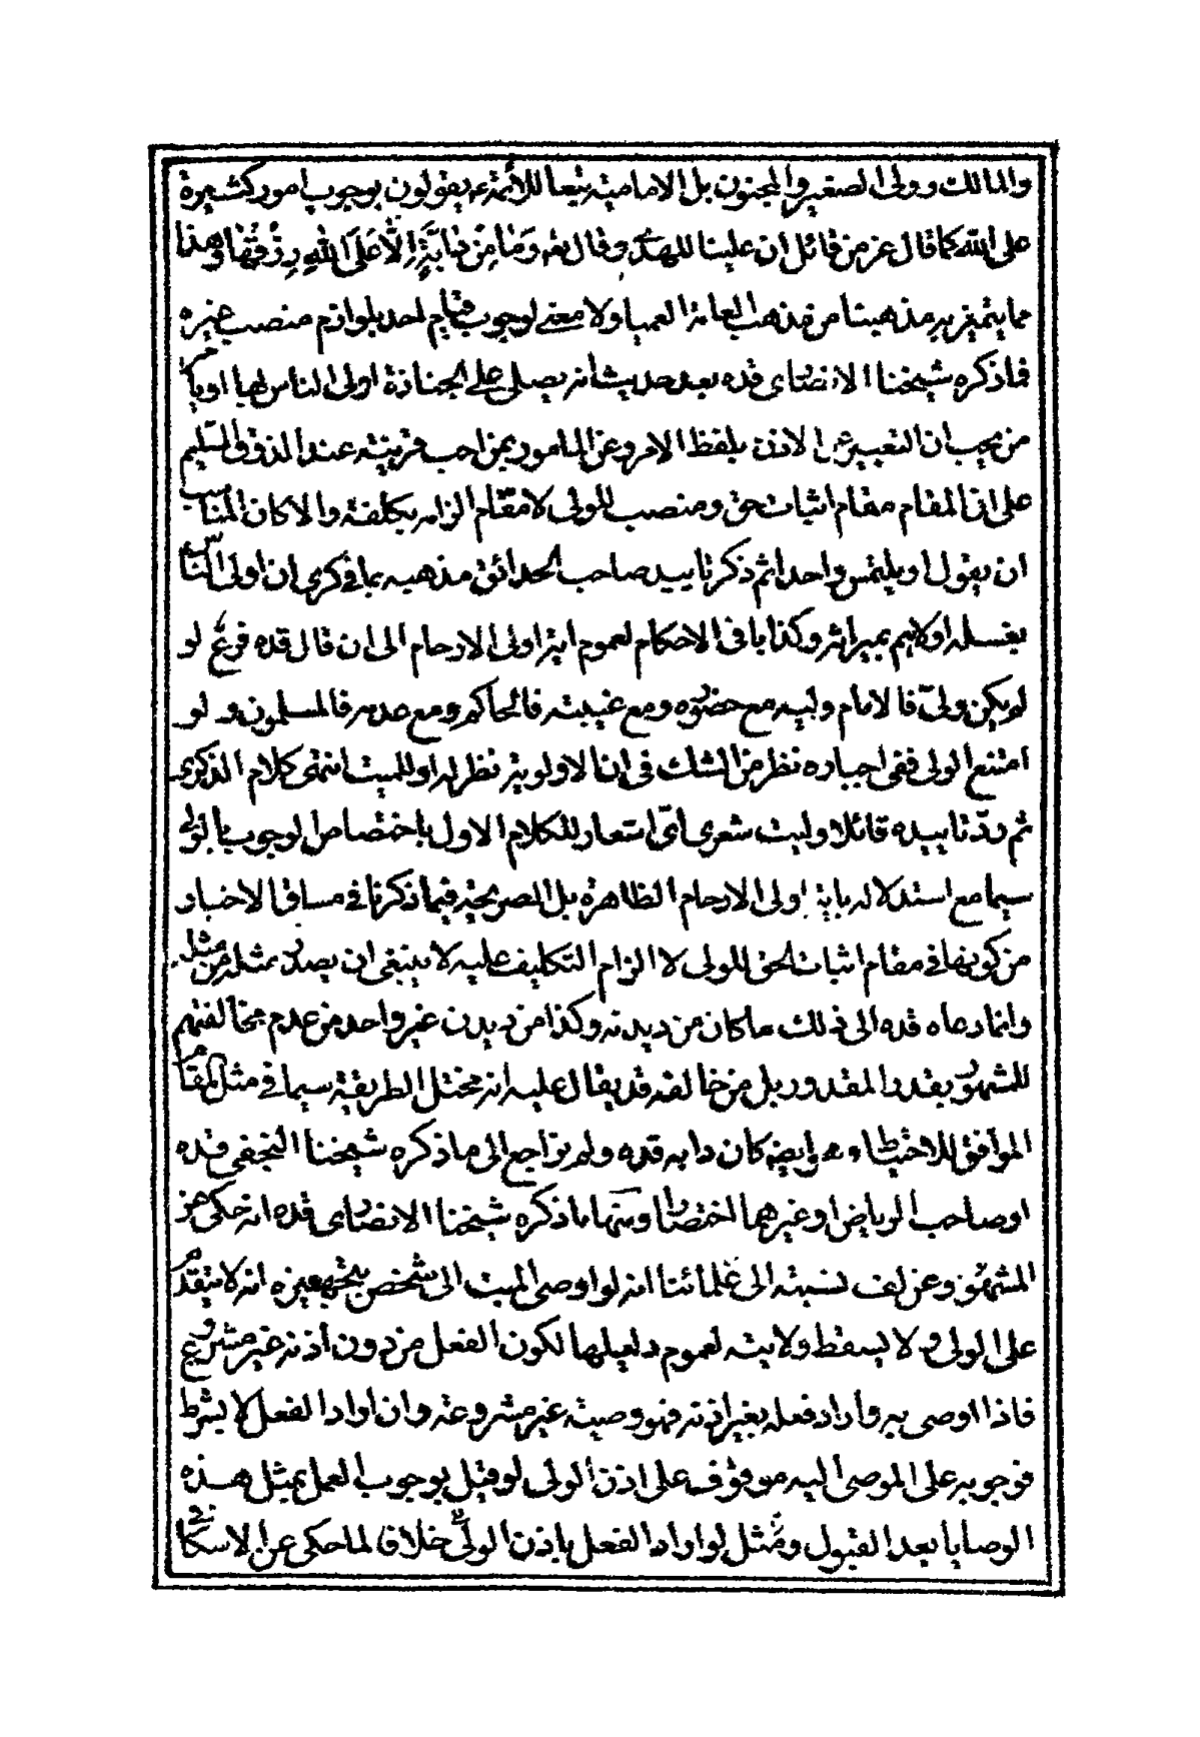 والمالك وولى الصغير والمجنون بل الامامية تبعا للأئمة ع يقولون بوجوب امور كثيرة
على الله كما قال عز من قائل ان علينا للهدى وقال تعه وَمٰا مِنْ دٰابَّةٍ اِلّٰا عَلَى اللهِ رِزْقُهٰا وهذا
مما يتميز به مذهبنا من مذهب العامة العمياء ولا معنى لوجوب قيام احد بلوازم منصب غيره
فما ذكره شيخنا الانصارى قده بعد حديث انه يصلى على الجنازة اولى الناس بها او يأمر
من يحب ان التعبير عن الاذن بلفظ الامر وعن المامور بمن احب قرينة عند الذوق السليم
على ان المقام مقام اثبات حق ومنصب للولى لا مقام الزامه بكلفة والا كان المناسب
ان يقول او يلتمس واحدا ثم ذكر تاييد صاحب الحدائق مذهبه بما فى كرى ان اولى الناس
بغسله اولاهم بميراثه وكذا باقى الاحكام لعموم اية اولى الارحام الى ان قال قده فرع لو
لم يكن ولىّ فالامام وليه مع حضوره ومع غيبته فالحاكم ومع عدمه فالمسلمون و لو
امتنع الولى ففى اجباره نظر من الشك فى ان الاولوية نظر له او للميت انتهى كلام الذكرى
ثم ردّ تاييده قائلا وليت شعرى اىّ اشعار للكلام الاول باختصاص الوجوب بالولى
سيما مع استدلاله باية اولى الارحام الظاهرة بل الصريحة فيما ذكرنا فى مساق الاخبار
من كونها فى مقام اثبات الحق للولى لا الزام التكليف عليه لا ينبغى ان يصدر مثله من مثله
وانما دعاه قده الى ذلك ما كان من ديدنه وكذا من ديدن غير واحد من عدم مخالفتهم
للمشهور بقدر المقدور بل من خالفه قد يقال عليه انه مختل الطريقة سيما فى مثل المقام
الموافق للاحتياط وايضه كان دابه قده ولم نراجع الى ما ذكره شيخنا النجفى قده
او صاحب الرياض او غيرهما اختصارا ومنها ما ذكره شيخنا الانصارى قده انه حكى عن
المشهور وعن لف نسبته الى علمائنا انه لو اوصى الميت الى شخص بتجهيزه انه لا يتقدم
على الولى ولا يسقط ولايته لعموم دليلها لكون الفعل من دون اذنه غير مشروع
فاذا اوصى به واراد فعله بغير اذنه فهو وصية غير مشروعة وان اراد الفعل لا بشرط
فوجوبه على الموصى اليه موقوف على اذن الولى لو قيل بوجوب العمل بمثل هذه
الوصايا بعد القبول ومثل لو اراد الفعل باذن الولى خلاق لما حكى عن الاسكافى